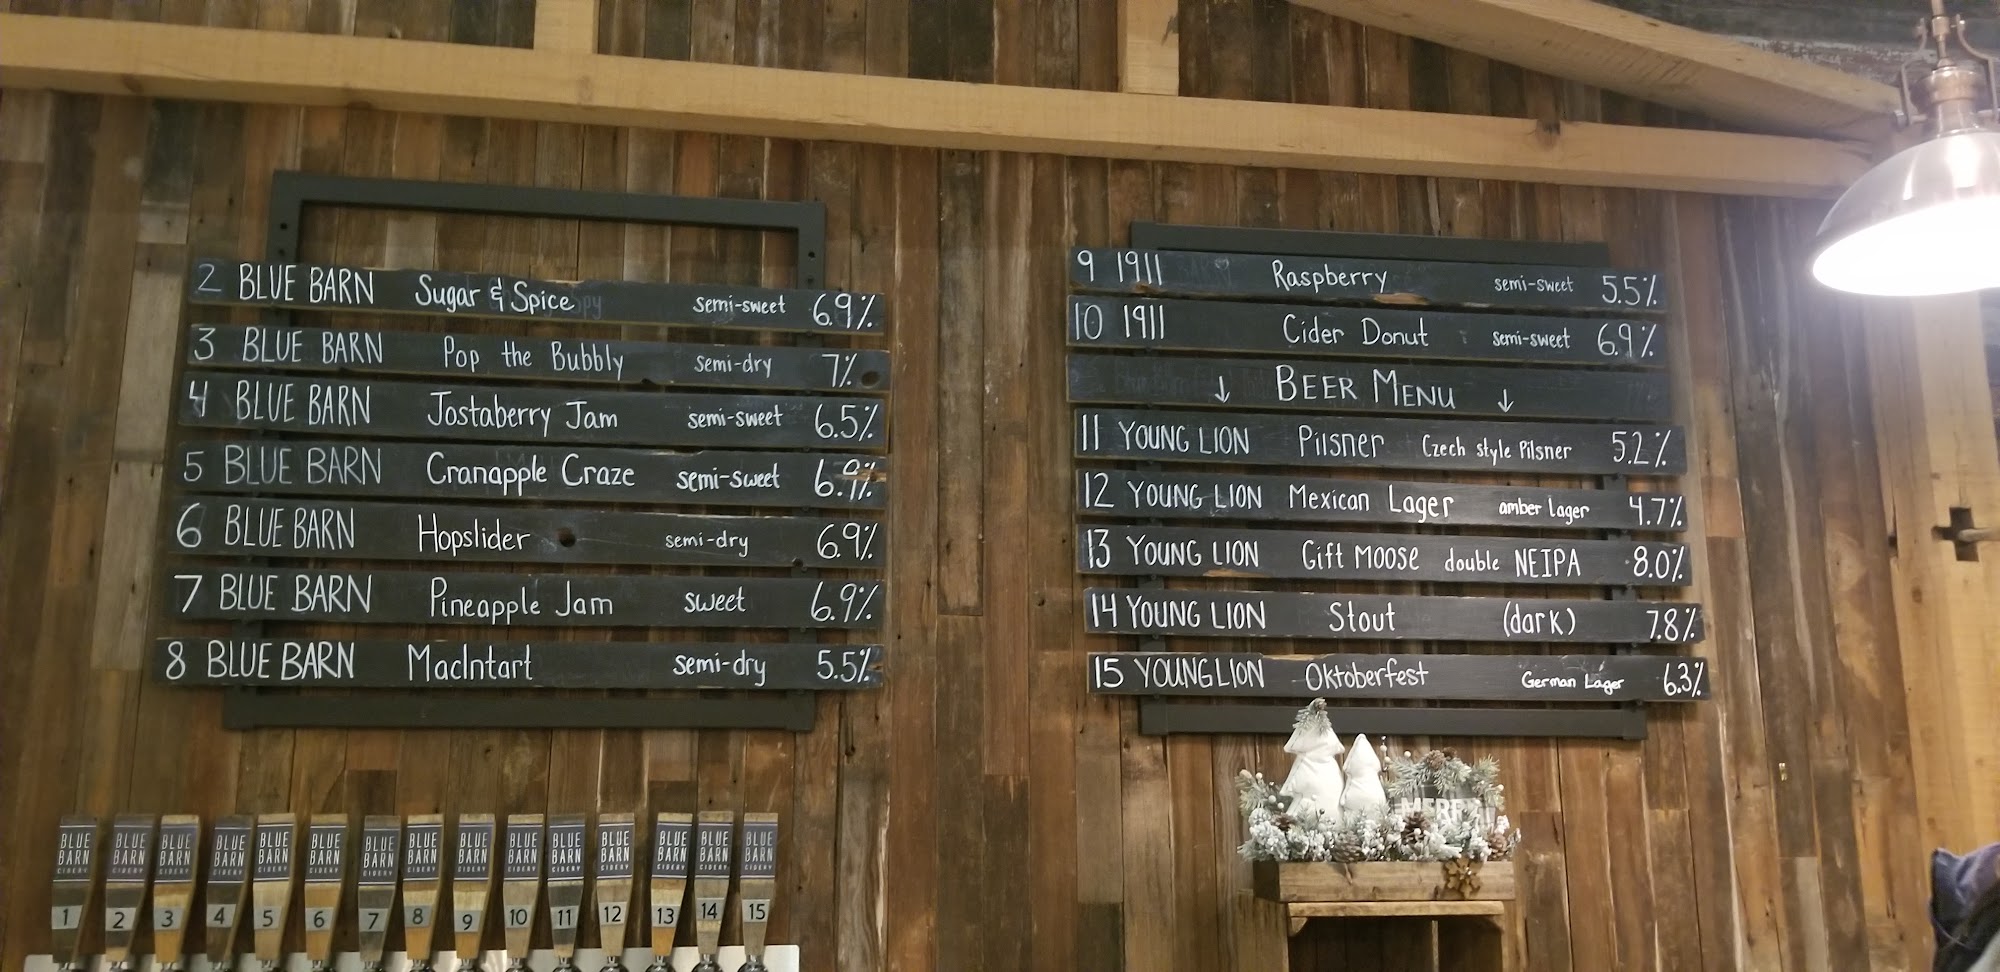 2 BLUE BARN Sugar & Spice semi-sweet 6.9%
3 BLUE BARN Pop the Bubbly semi-dry 7%
4 BLUE BARN Jostaberry Jam semi-sweet 6.5%
5 BLUE BARN Cranapple Craze semi-sweet 6.9%
6 BLUE BARN Hopslider semi-dry 6.9%
7 BLUE BARN Pineapple Jam sweet 6.9%
8 BLUE BARN MacIntart semi-dry 5.5%
9 1911 Raspberry semi-sweet 5.5%
10 1911 Cider Donut semi-sweet 6.9%
↓ BEER MENU ↓
11 YOUNG LION Pilsner Czech style Pilsner 5.2%
12 YOUNG LION Mexican Lager amber lager 4.7%
13 YOUNG LION Gift MOOSE double NEIPA 8.0%
14 YOUNG LION Stout (dark) 7.8%
15 YOUNG LION Oktoberfest German Lager 6.3%
BLUE BARN CIDERY 1
BLUE BARN CIDERY 2
BLUE BARN CIDERY 3
BLUE BARN CIDERY 4
BLUE BARN CIDERY 5
BLUE BARN CIDERY 6
BLUE BARN CIDERY 7
BLUE BARN CIDERY 8
BLUE BARN CIDERY 9
BLUE BARN CIDERY 10
BLUE BARN CIDERY 11
BLUE BARN CIDERY 12
BLUE BARN CIDERY 13
BLUE BARN CIDERY 14
BLUE BARN CIDERY 15